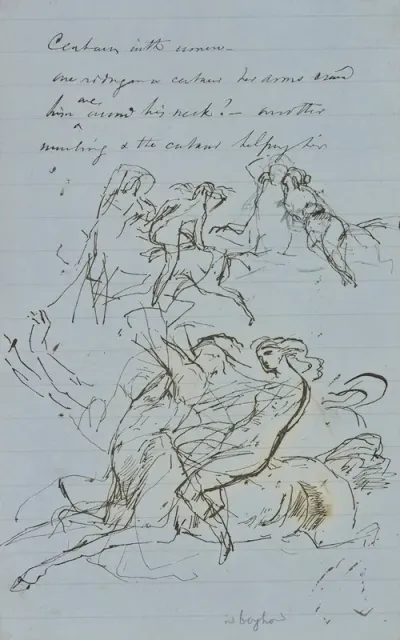 Centaurs with women –
one riding on a centaur her arms round
him round his neck! – another
mounting & the centaur helping her